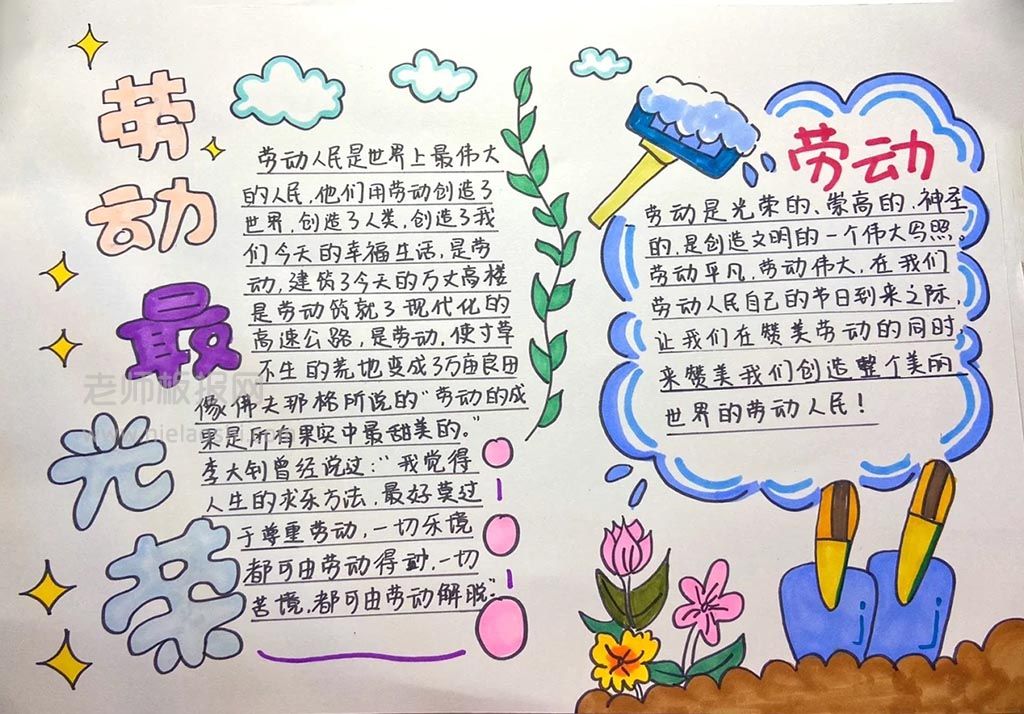 劳动最光荣
劳动人民是世界上最伟大
的人民，他们用劳动创造了
世界，创造了人类，创造了我
们今天的幸福生活，是劳
动，建筑了今天的万丈高楼
是劳动筑就了现代化的
高速公路，是劳动，使寸草
不生的荒地变成了万亩良田
像佛夫那格所说的“劳动的成
果是所有果实中最甜美的。”
李大钊曾经说过：“我觉得
人生的求乐方法，最好莫过
于尊重劳动，一切乐境
都可由劳动得到，一切
苦境，都可由劳动解脱。”
劳动
劳动是光荣的、崇高的、神圣
的，是创造文明的一个伟大写照。
劳动平凡，劳动伟大，在我们
劳动人民自己的节日到来之际，
让我们在赞美劳动的同时，
来赞美我们创造整个美丽
世界的劳动人民！
老师板报网